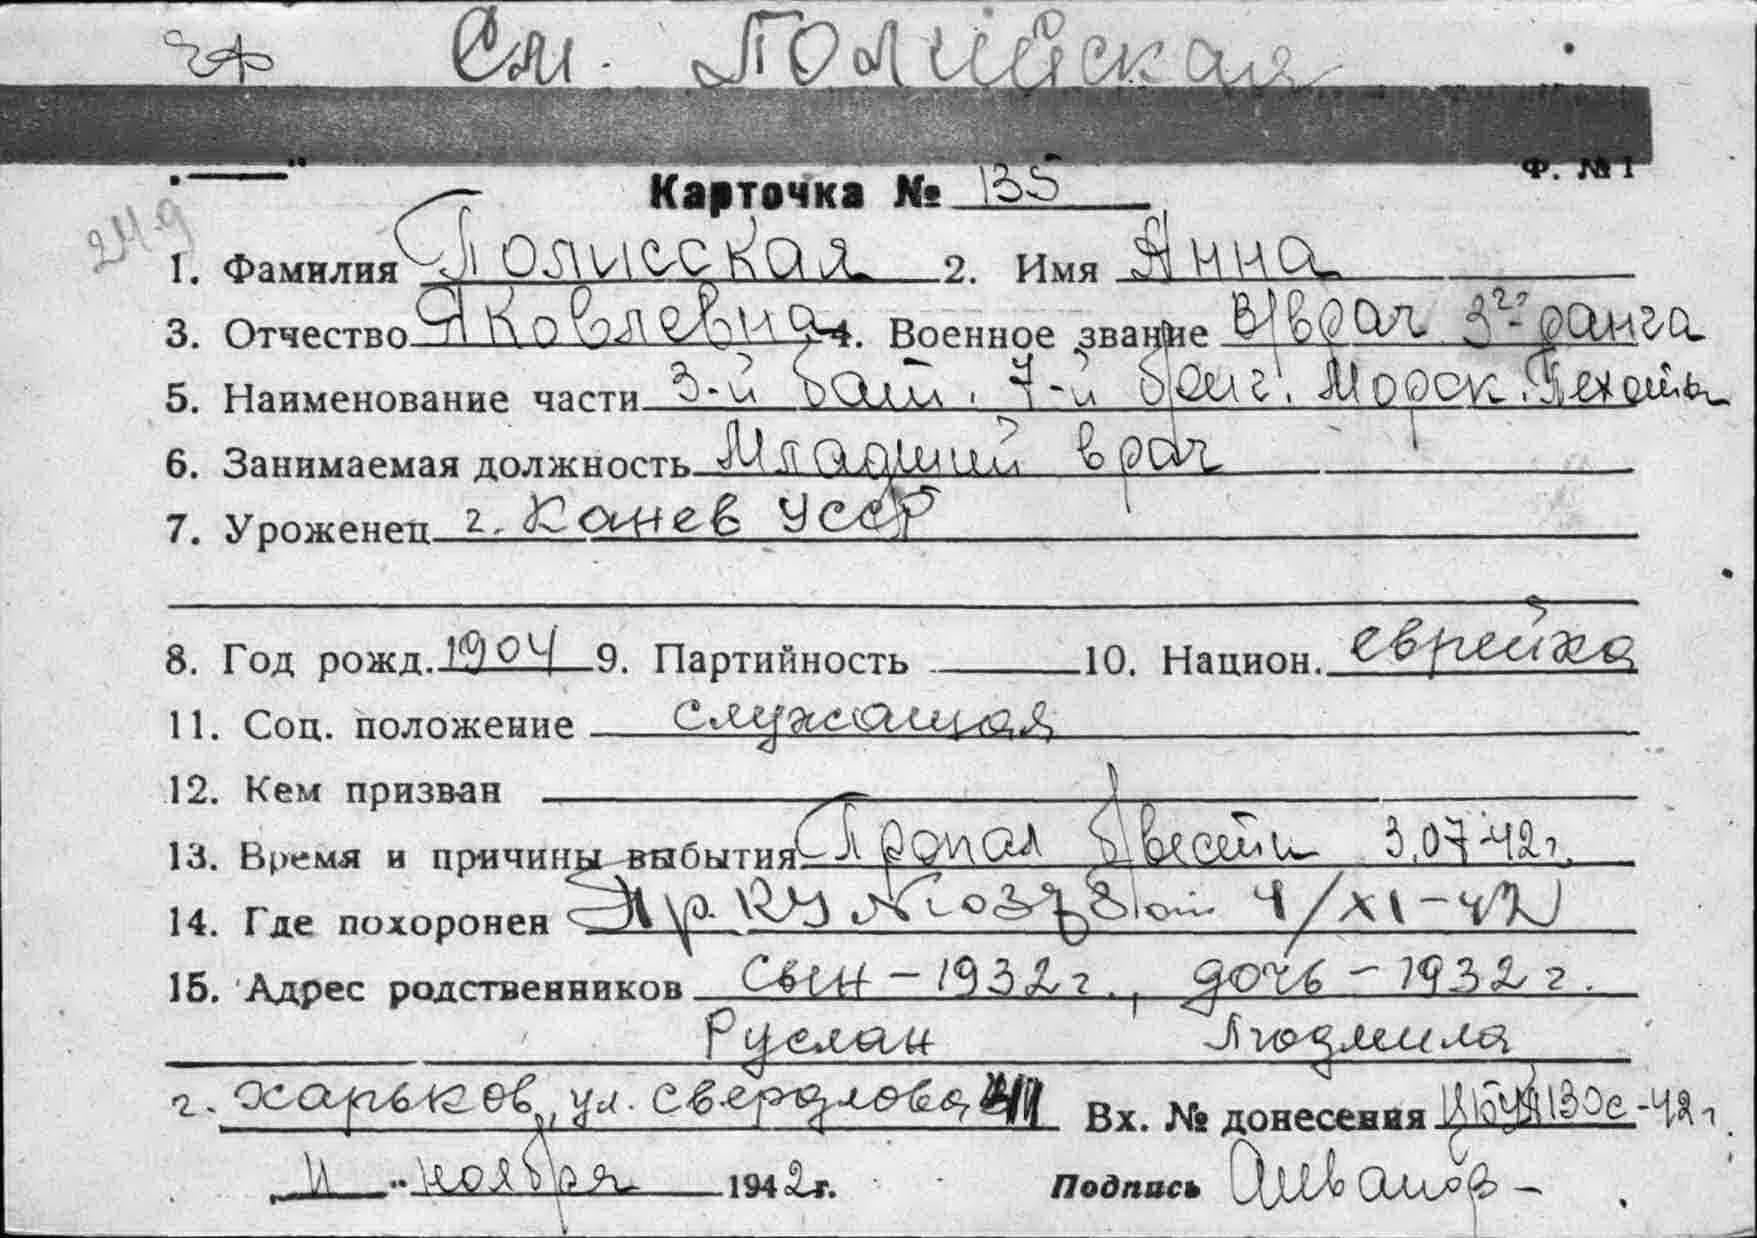 См. Полийская
Ф. № 1
Карточка № 135
1. Фамилия Полисская 2. Имя Анна
3. Отчество Яковлевна 4. Военное звание в/врач 3го ранга
5. Наименование части 3-й бат. 7-й бриг. Морск. Пехоты
6. Занимаемая должность Младший врач
7. Уроженец г. Канев УССР
8. Год рожд. 1904 9. Партийность 10. Национ. еврейка
11. Соц. положение служащая
12. Кем призван
13. Время и причины выбытия Пропал б/вести 3.07.42г.
14. Где похоронен Пр. от 4/XI-42
15. Адрес родственников Сын – 1932 г., дочь – 1932 г.
Руслан Людмила
г. Харьков, ул. Свердлова Вх. № донесения
11 " ноября 1942 г. Подпись